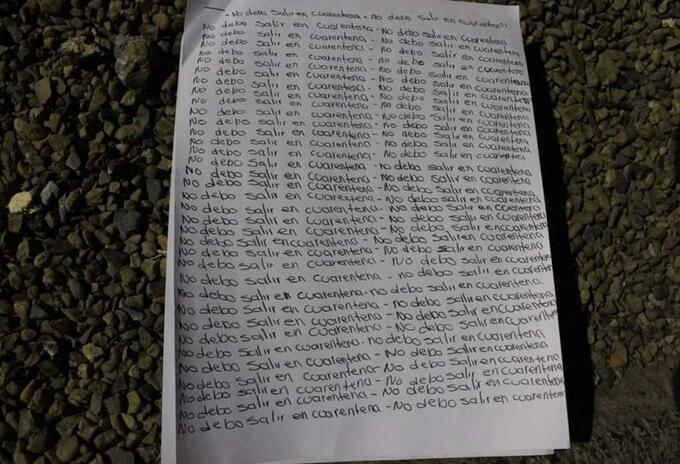 - No debo salir en cuarestena - no debo salir en cuarentena
No debo salir en cuarentena - No debo salir en cuarentena
No debo salir en cuarentena - No debo salir en cuarentena
No debo salir en cuarentena - no debo salir en cuarentena
No debo salir en cuarentena - no debo salir en cuarentena
No debo salir en cuarentena - No debo salir en cuarentena
No debo salir en cuarentena - No debo salir en cuarentena
No debo salir en cuarentena - no debo salir en cuarentena
No debo salir en cuarentena - No debo salir en cuarentena
No debo salir en cuarentena - no debo salir en cuarentena
No debo salir en cuarentena - no debo salir en cuarentena
No debo salir en cuarentena - no debo salir en cuarentena
No debo salir en cuarentena - no debo salir en cuarentena
No debo salir en cuarentena - no debo salir en cuarentena
No debo salir en cuarentena - No debo salir en cuarentena
No debo salir en cuarestena - No debo salir en cuarentena
No debo salir en cuarentena - No debo salir en cuarentena
No debo salir en cuarentena - No debo salir en cuarentena
No debo salir en cuarentena - No debo salir en cuarentena
No debo salir en cuarentena - No debo salir en cuarentena
No debo salir en cuarentena - No debo salir en cuarentena
No debo salir en cuarentena - no debo salir en cuarentena
No debo salir en cuarentena - no debo salir en cuarentena
No debo salir en cuarentena - no debo salir en cuarentena
No debo salir en cuarentena - No debo salir en cuarentena
No debo salir en cuarentena - No debo salir en cuarentena
No debo salir en cuarentena - no debo salir en cuarentena
No debo salir en cuarentena - No debo salir en cuarentena
No debo salir en cuarentena - No debo salir en cuarentena
No debo salir en cuarentena - No debo salir en cuarentena
No debo salir en cuarentena - No debo salir en cuarentena
No debo salir en cuarentena - No debo salir en cuarentena